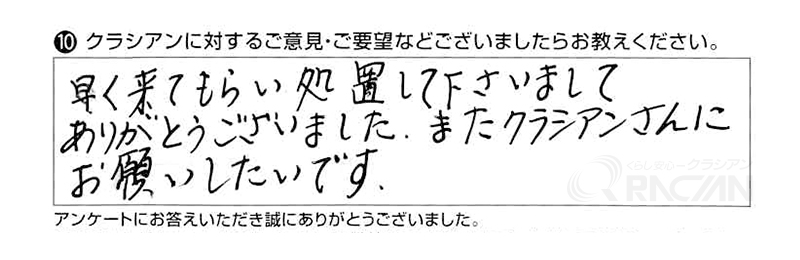 ❿ クラシアンに対するご意見・ご要望などございましたらお教えください。
早く来てもらい処置して下さいまして
ありがとうございました. またクラシアンさんに
お願いしたいです.
くらし安心クラシアン
QRACIAN
アンケートにお答えいただき誠にありがとうございました。